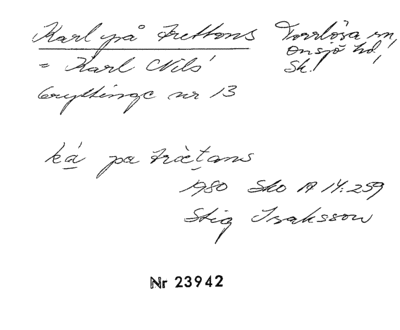 Karl på Trettons Torrlösa sn,
Onsjö hd,
= Karl Nils' Sk.
Gryttinge nr 13
ká pa træ̀tans
1980 Sko A 14:259
Stig Isaksson
Nr 23942